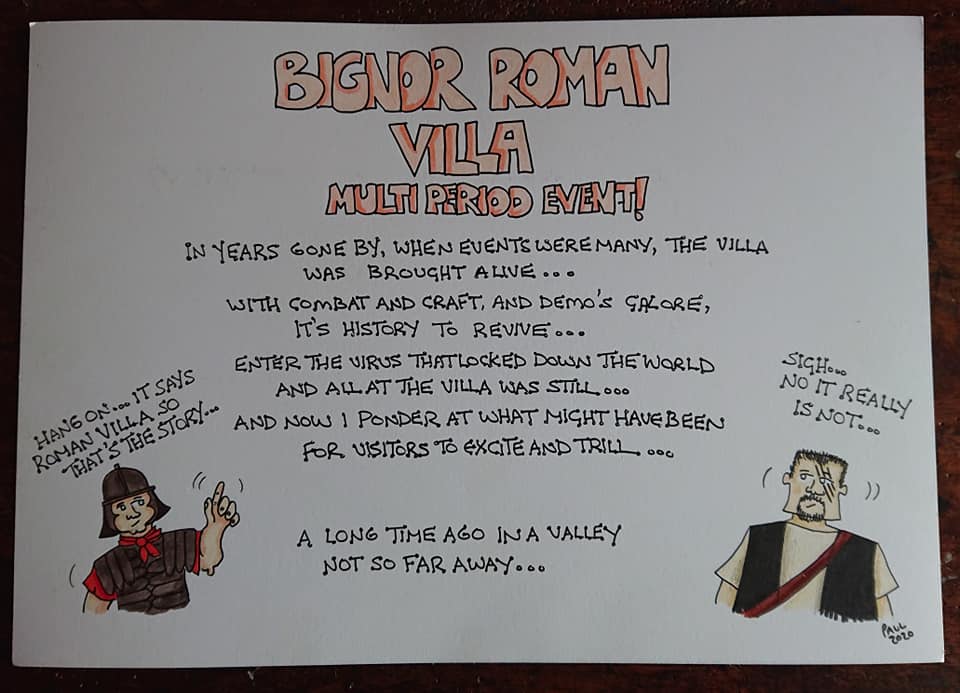 BIGNOR ROMAN
VILLA
MULTI PERIOD EVENT!
IN YEARS GONE BY, WHEN EVENTS WERE MANY, THE VILLA
WAS BROUGHT ALIVE...
WITH COMBAT AND CRAFT, AND DEMO'S GALORE,
IT'S HISTORY TO REVIVE...
ENTER THE VIRUS THAT LOCKED DOWN THE WORLD
AND ALL AT THE VILLA WAS STILL...
AND NOW I PONDER AT WHAT MIGHT HAVE BEEN
FOR VISITORS TO EXCITE AND TRILL...
HANG ON... IT SAYS
ROMAN VILLA SO
THAT'S THE STORY...
SIGH...
NO IT REALLY
IS NOT...
A LONG TIME AGO IN A VALLEY
NOT SO FAR AWAY...
PAUL
2020